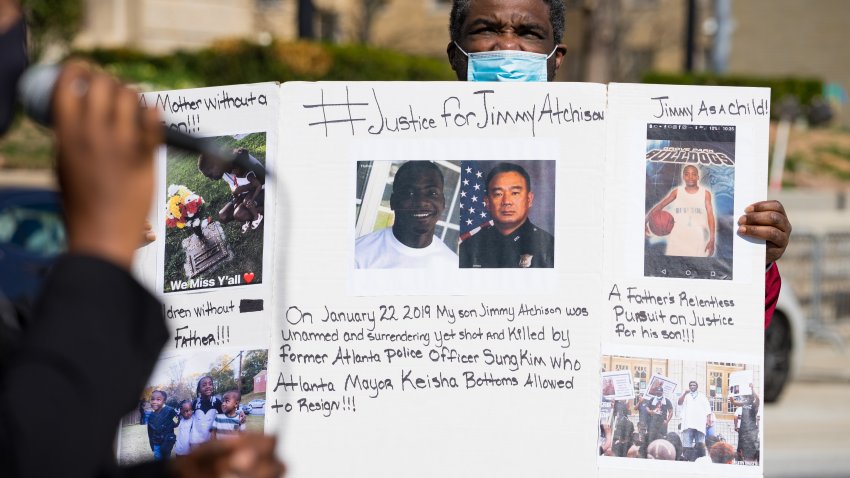 A Mother without a
son!!!
We Miss Y'all
Children without
Father!!!
#Justice for Jimmy Atchison
On January 22 2019 My son Jimmy Atchison was
unarmed and surrendering yet shot and Killed by
former Atlanta Police Officer Sung Kim who
Atlanta Mayor Keisha Bottoms Allowed
to Resign!!!
Jimmy As a Child!
BULLDOGS
A Father's Relentless
Pursuit on Justice
for his son!!!